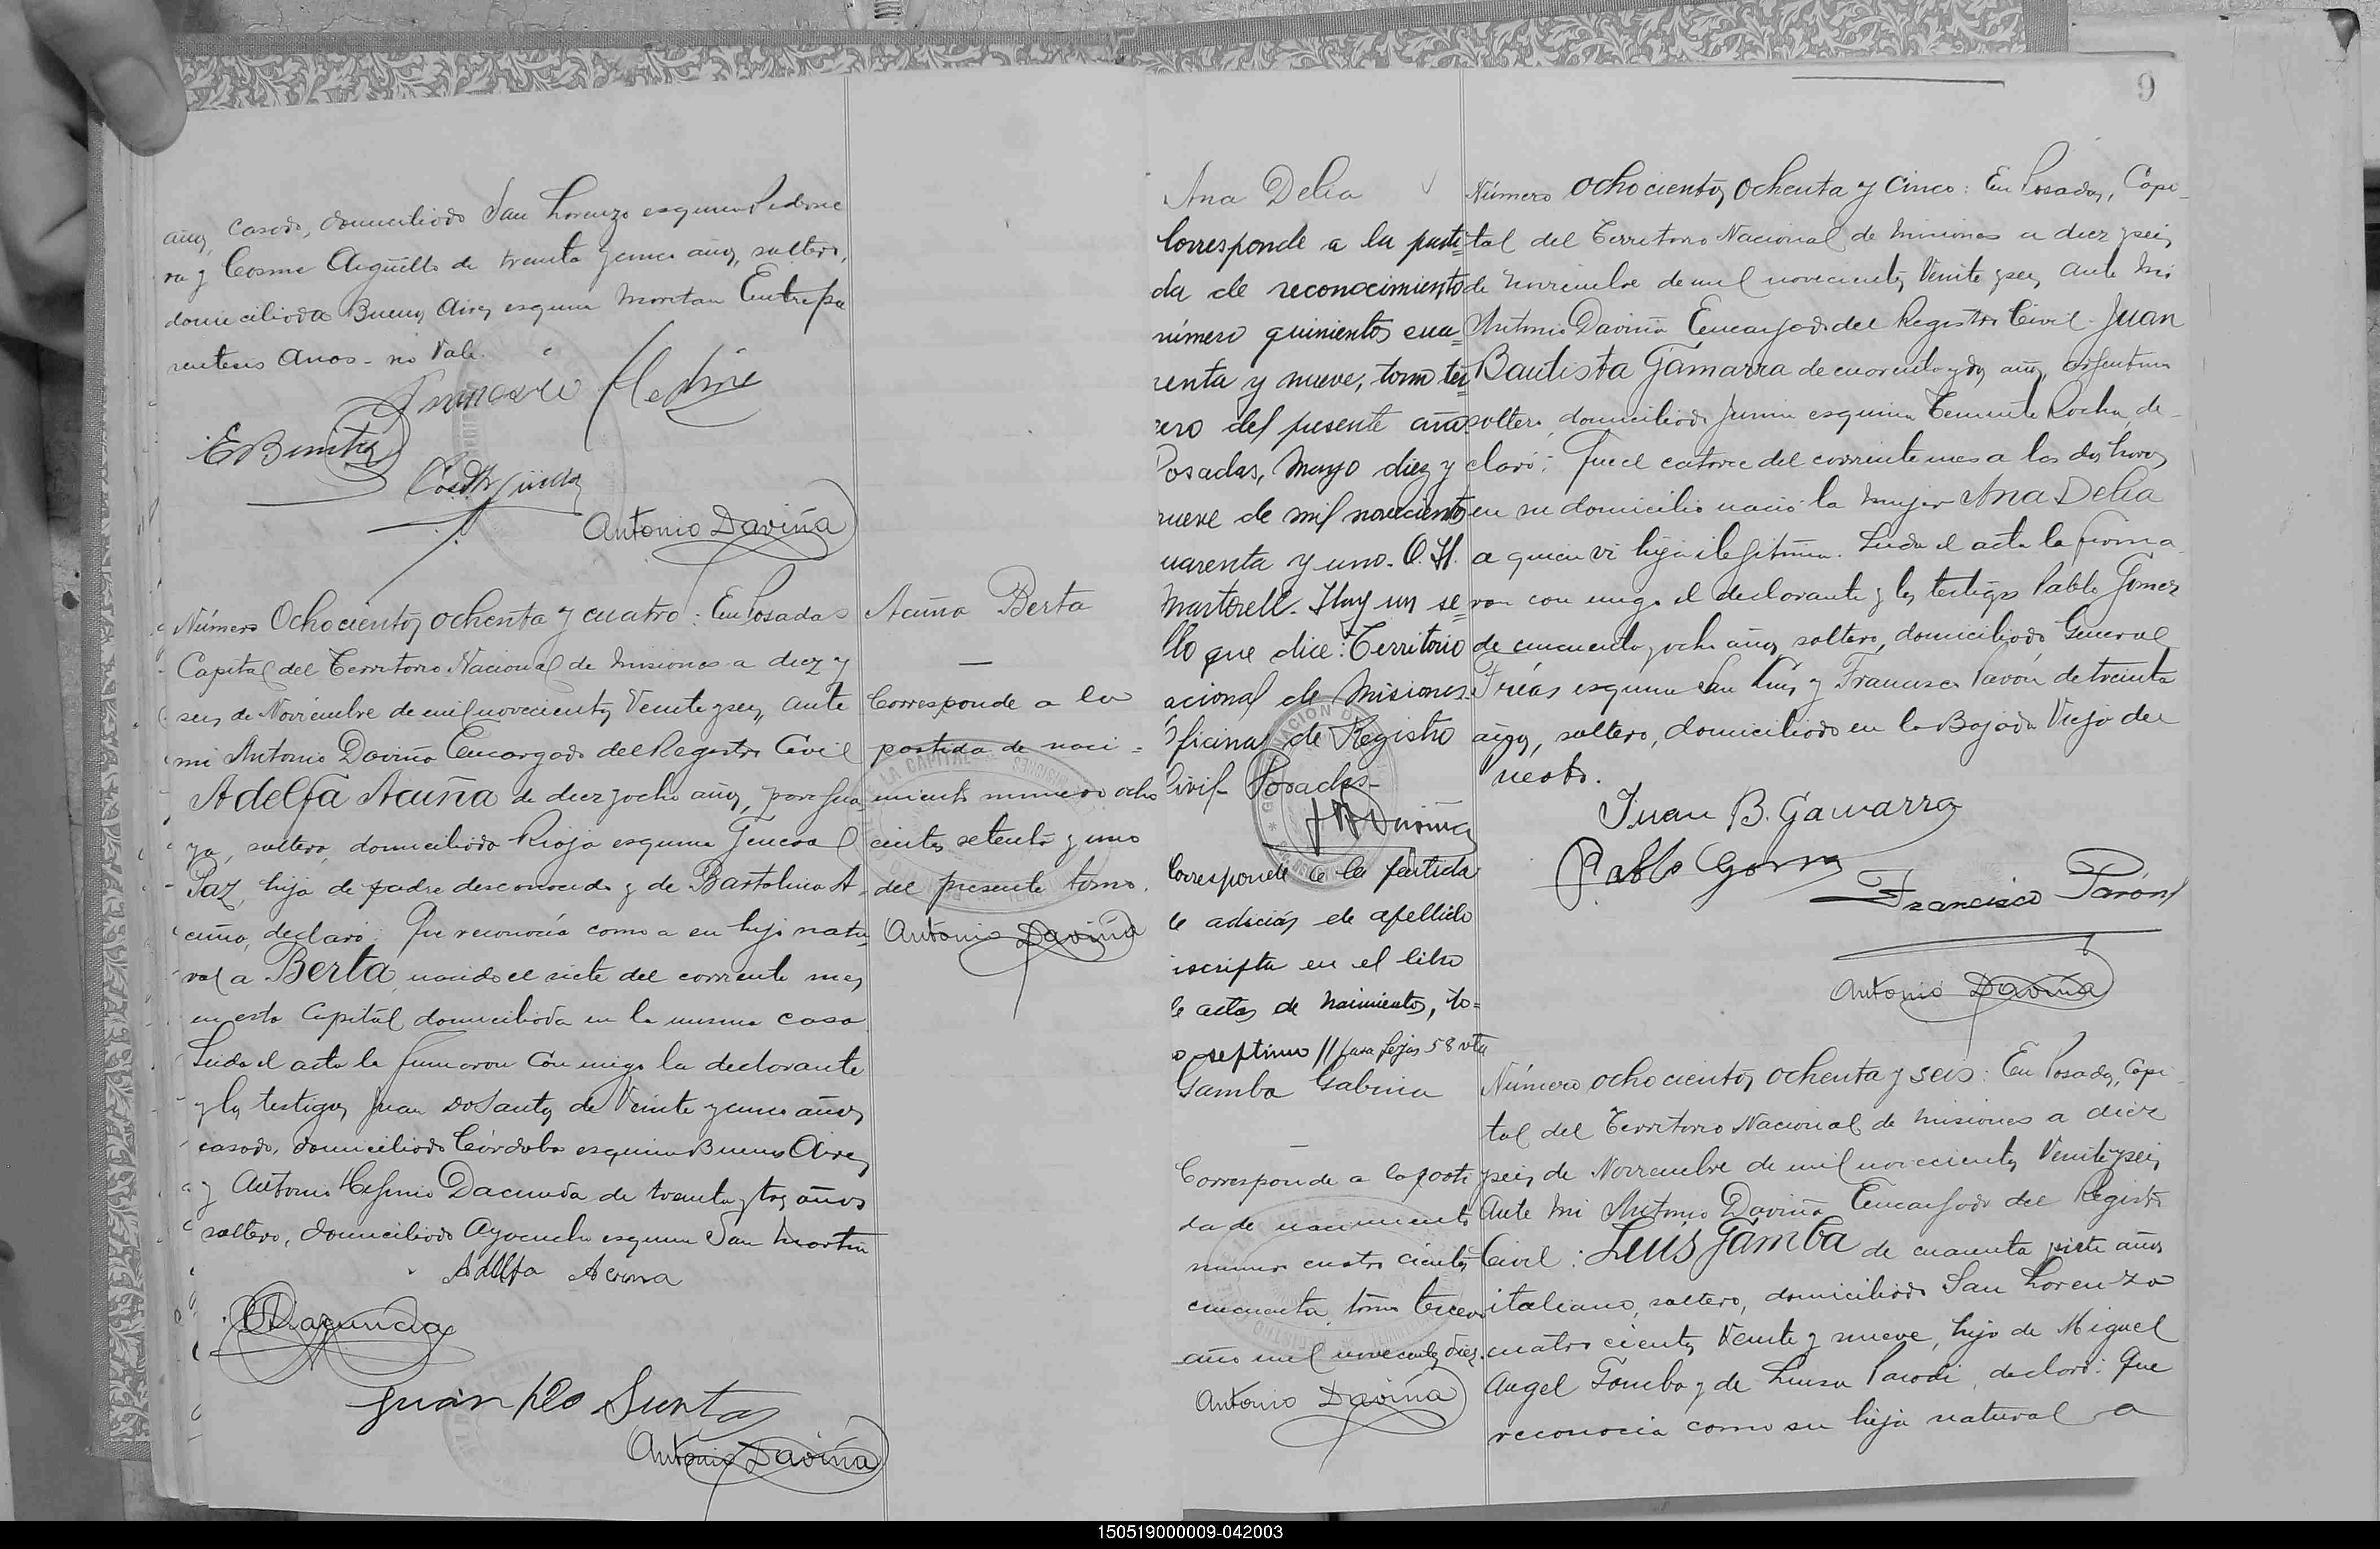 años, casado, domiciliado San Lorenzo esquina
ra y Cosme Argüello de treinta y cinco años, soltero,
domiciliado Buenos Aires esquina Entre pa
rentesis años - no vale.
E Benitez
Antonio Daviña
Número Ochocientos ochenta y cuatro: En Posadas
Capital del Territorio Nacional de Misiones a diez y
seis de Noviembre de mil novecientos Veinte y seis, ante
mi Antonio Daviña Encargado del Registro Civil
Adelfa Acuña de diez y ocho años, paragua
ya, soltera, domiciliada Rioja esquina General
Paz, hija de padre desconocido y de Bartolina A
cuña, declaró: Que reconocía como a su hija natu
ral a Berta, nacida el siete del corriente mes
en esta Capital domiciliada en la misma casa
Leida el acta la firmaron conmigo la declarante
y los testigos Juan DoSantos de Veinte y cinco años
casado, domiciliado Córdoba esquina Buenos Aires
y Antonio Dacunda de treinta y tres años
soltero, domiciliado Ayacucho esquina San Martin
Adelfa Acuna
Juan Do Suntos
Antonio Daviña
Acuña Berta
—
Corresponde a la
partida de naci =
miento número ocho
cientos setenta y uno
del presente tomo.
Antonio Daviña
9
Ana Delia
Corresponde a la parti
da de reconocimiento
número quinientos cua=
renta y nueve, tomo ter
cero del presente año
Posadas, Mayo diez y
nueve de mil novecientos
cuarenta y uno. O. H.
Martorell. Hay un se=
llo que dice: Territorio
acional de Misiones.
Oficina de Registro
Civil Posadas-
Corresponde a la partida
de adición de apellido
inscripta en el libro
de actas de Nacimientos, to=
mo septimo // fojas 58 vta
Número ochocientos ochenta y cinco: En Posadas, Capi-
tal del Territorio Nacional de Misiones a diez y seis
de Noviembre de mil novecientos Veinte y seis, ante mi
Antonio Daviña Encargado del Registro Civil Juan
Bautista Gamarra de cuarenta y dos años, argentino
soltero, domiciliado Junin esquina Teniente Rocha, de-
claró: Que el catorce del corriente mes a las dos horas
en su domicilio nació la mujer Ana Delia
a quien vi hija ilegitima. Leida el acta la firma
ron conmigo el declarante y los testigos Pablo Gomez
de cincuenta y ocho años, soltero, domiciliado General
Frías esquina San Luis y Francisco Pavón de treinta
años, soltero, domiciliado en la Bajada Vieja del
Juan B. Gamarra
Pablo Gomez
Francisco Pavón
Antonio Daviña
Gamba Gabina
—
Corresponde a la parti
da de nacimiento
número cuatro cientos
cincuenta, tomo tercero
año mil novecientos diez.
Antonio Daviña
Número ochocientos ochenta y seis: En Posadas, Capi
tal del Territorio Nacional de Misiones a diez
y seis de Noviembre de mil novecientos Veinte y seis
Ante mi Antonio Daviña Encargado del Registro
Civil: Luis Gamba de cuarenta y siete años
italiano, soltero, domiciliado San Lorenzo
cuatro cientos Veinte y nueve, hijo de Miguel
Angel Gamba y de Luisa Parodi, declaró: Que
reconocia como su hija natural a
150519000009-042003